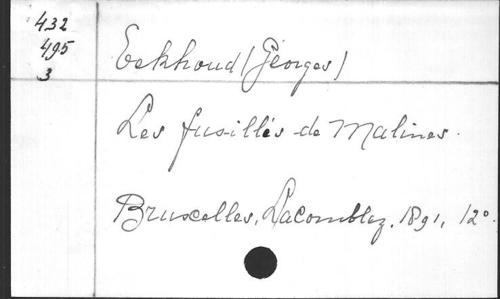 432
495
3
Eekhoud (Georges)
Les fusillés de Malines.
Bruxelles, Lacomblez, 1891, 12°.